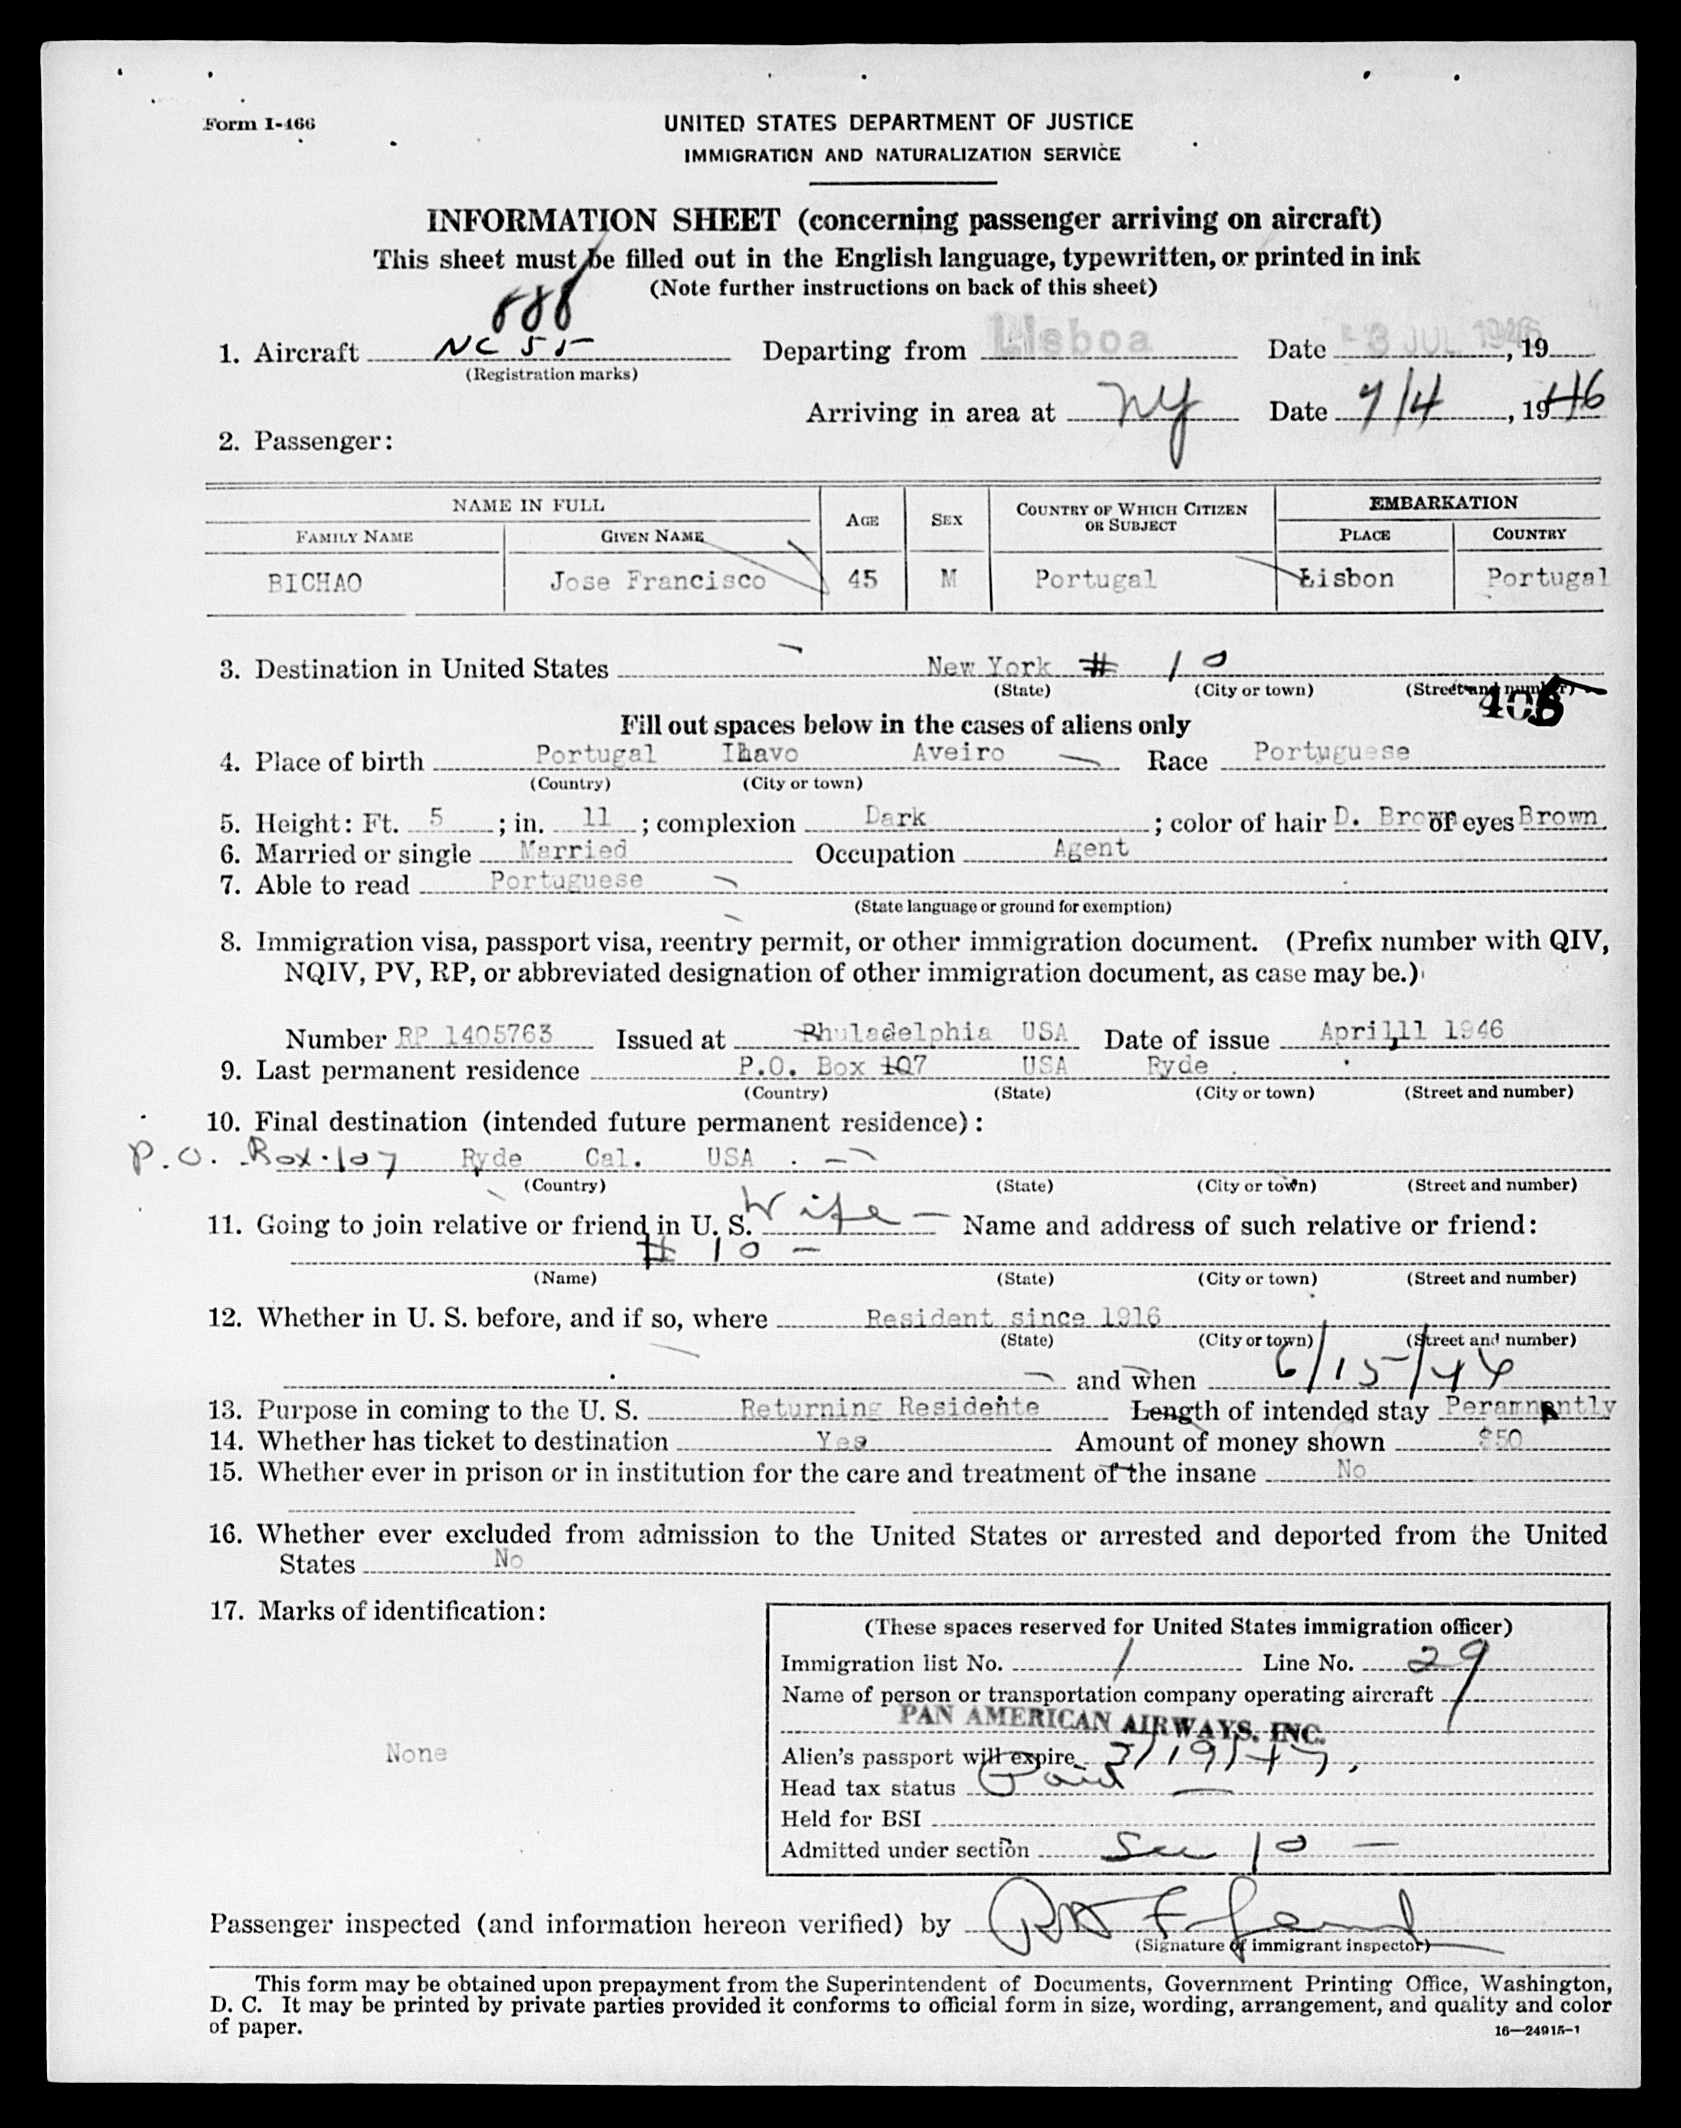 Form I-466
UNITED STATES DEPARTMENT OF JUSTICE
IMMIGRATION AND NATURALIZATION SERVICE
INFORMATION SHEET (concerning passenger arriving on aircraft)
This sheet must be filled out in the English language, typewritten, or printed in ink
(Note further instructions on back of this sheet)
888
1. Aircraft NC 55 Departing from Lisboa Date -3 JUL 1946, 19
(Registration marks)
Arriving in area at NY Date 7/4, 1946
2. Passenger:
NAME IN FULL AGE SEX COUNTRY OF WHICH CITIZEN OR SUBJECT EMBARKATION
FAMILY NAME GIVEN NAME PLACE COUNTRY
BICHAO Jose Francisco 45 M Portugal Lisbon Portugal
3. Destination in United States New York # 10
(State) (City or town) (Street and number)
405
Fill out spaces below in the cases of aliens only
4. Place of birth Portugal Ilhavo Aveiro Race Portuguese
(Country) (City or town)
5. Height: Ft. 5; in. 11; complexion Dark; color of hair D. Brown of eyes Brown
6. Married or single Married Occupation Agent
7. Able to read Portuguese
(State language or ground for exemption)
8. Immigration visa, passport visa, reentry permit, or other immigration document. (Prefix number with QIV,
NQIV, PV, RP, or abbreviated designation of other immigration document, as case may be.)
Number RP 1405763 Issued at Phuladelphia USA Date of issue April,11 1946
9. Last permanent residence P.O. Box 107 USA Ryde .
(Country) (State) (City or town) (Street and number)
10. Final destination (intended future permanent residence):
P.O. Box. 107 Ryde Cal. USA .
(Country) (State) (City or town) (Street and number)
11. Going to join relative or friend in U. S. Wife - Name and address of such relative or friend:
# 10 -
(Name) (State) (City or town) (Street and number)
12. Whether in U. S. before, and if so, where Resident since 1916
(State) (City or town) (Street and number)
and when 6/15/44
13. Purpose in coming to the U. S. Returning Residente Length of intended stay Peramnently
14. Whether has ticket to destination Yes Amount of money shown $50
15. Whether ever in prison or in institution for the care and treatment of the insane No
16. Whether ever excluded from admission to the United States or arrested and deported from the United
States No
17. Marks of identification:
None
(These spaces reserved for United States immigration officer)
Immigration list No. 1 Line No. 29
Name of person or transportation company operating aircraft
PAN AMERICAN AIRWAYS, INC.
Alien's passport will expire 3/19/47,
Head tax status Paid
Held for BSI
Admitted under section Sec 10 -
Passenger inspected (and information hereon verified) by
(Signature of immigrant inspector)
This form may be obtained upon prepayment from the Superintendent of Documents, Government Printing Office, Washington,
D. C. It may be printed by private parties provided it conforms to official form in size, wording, arrangement, and quality and color
of paper.
16—24915-1